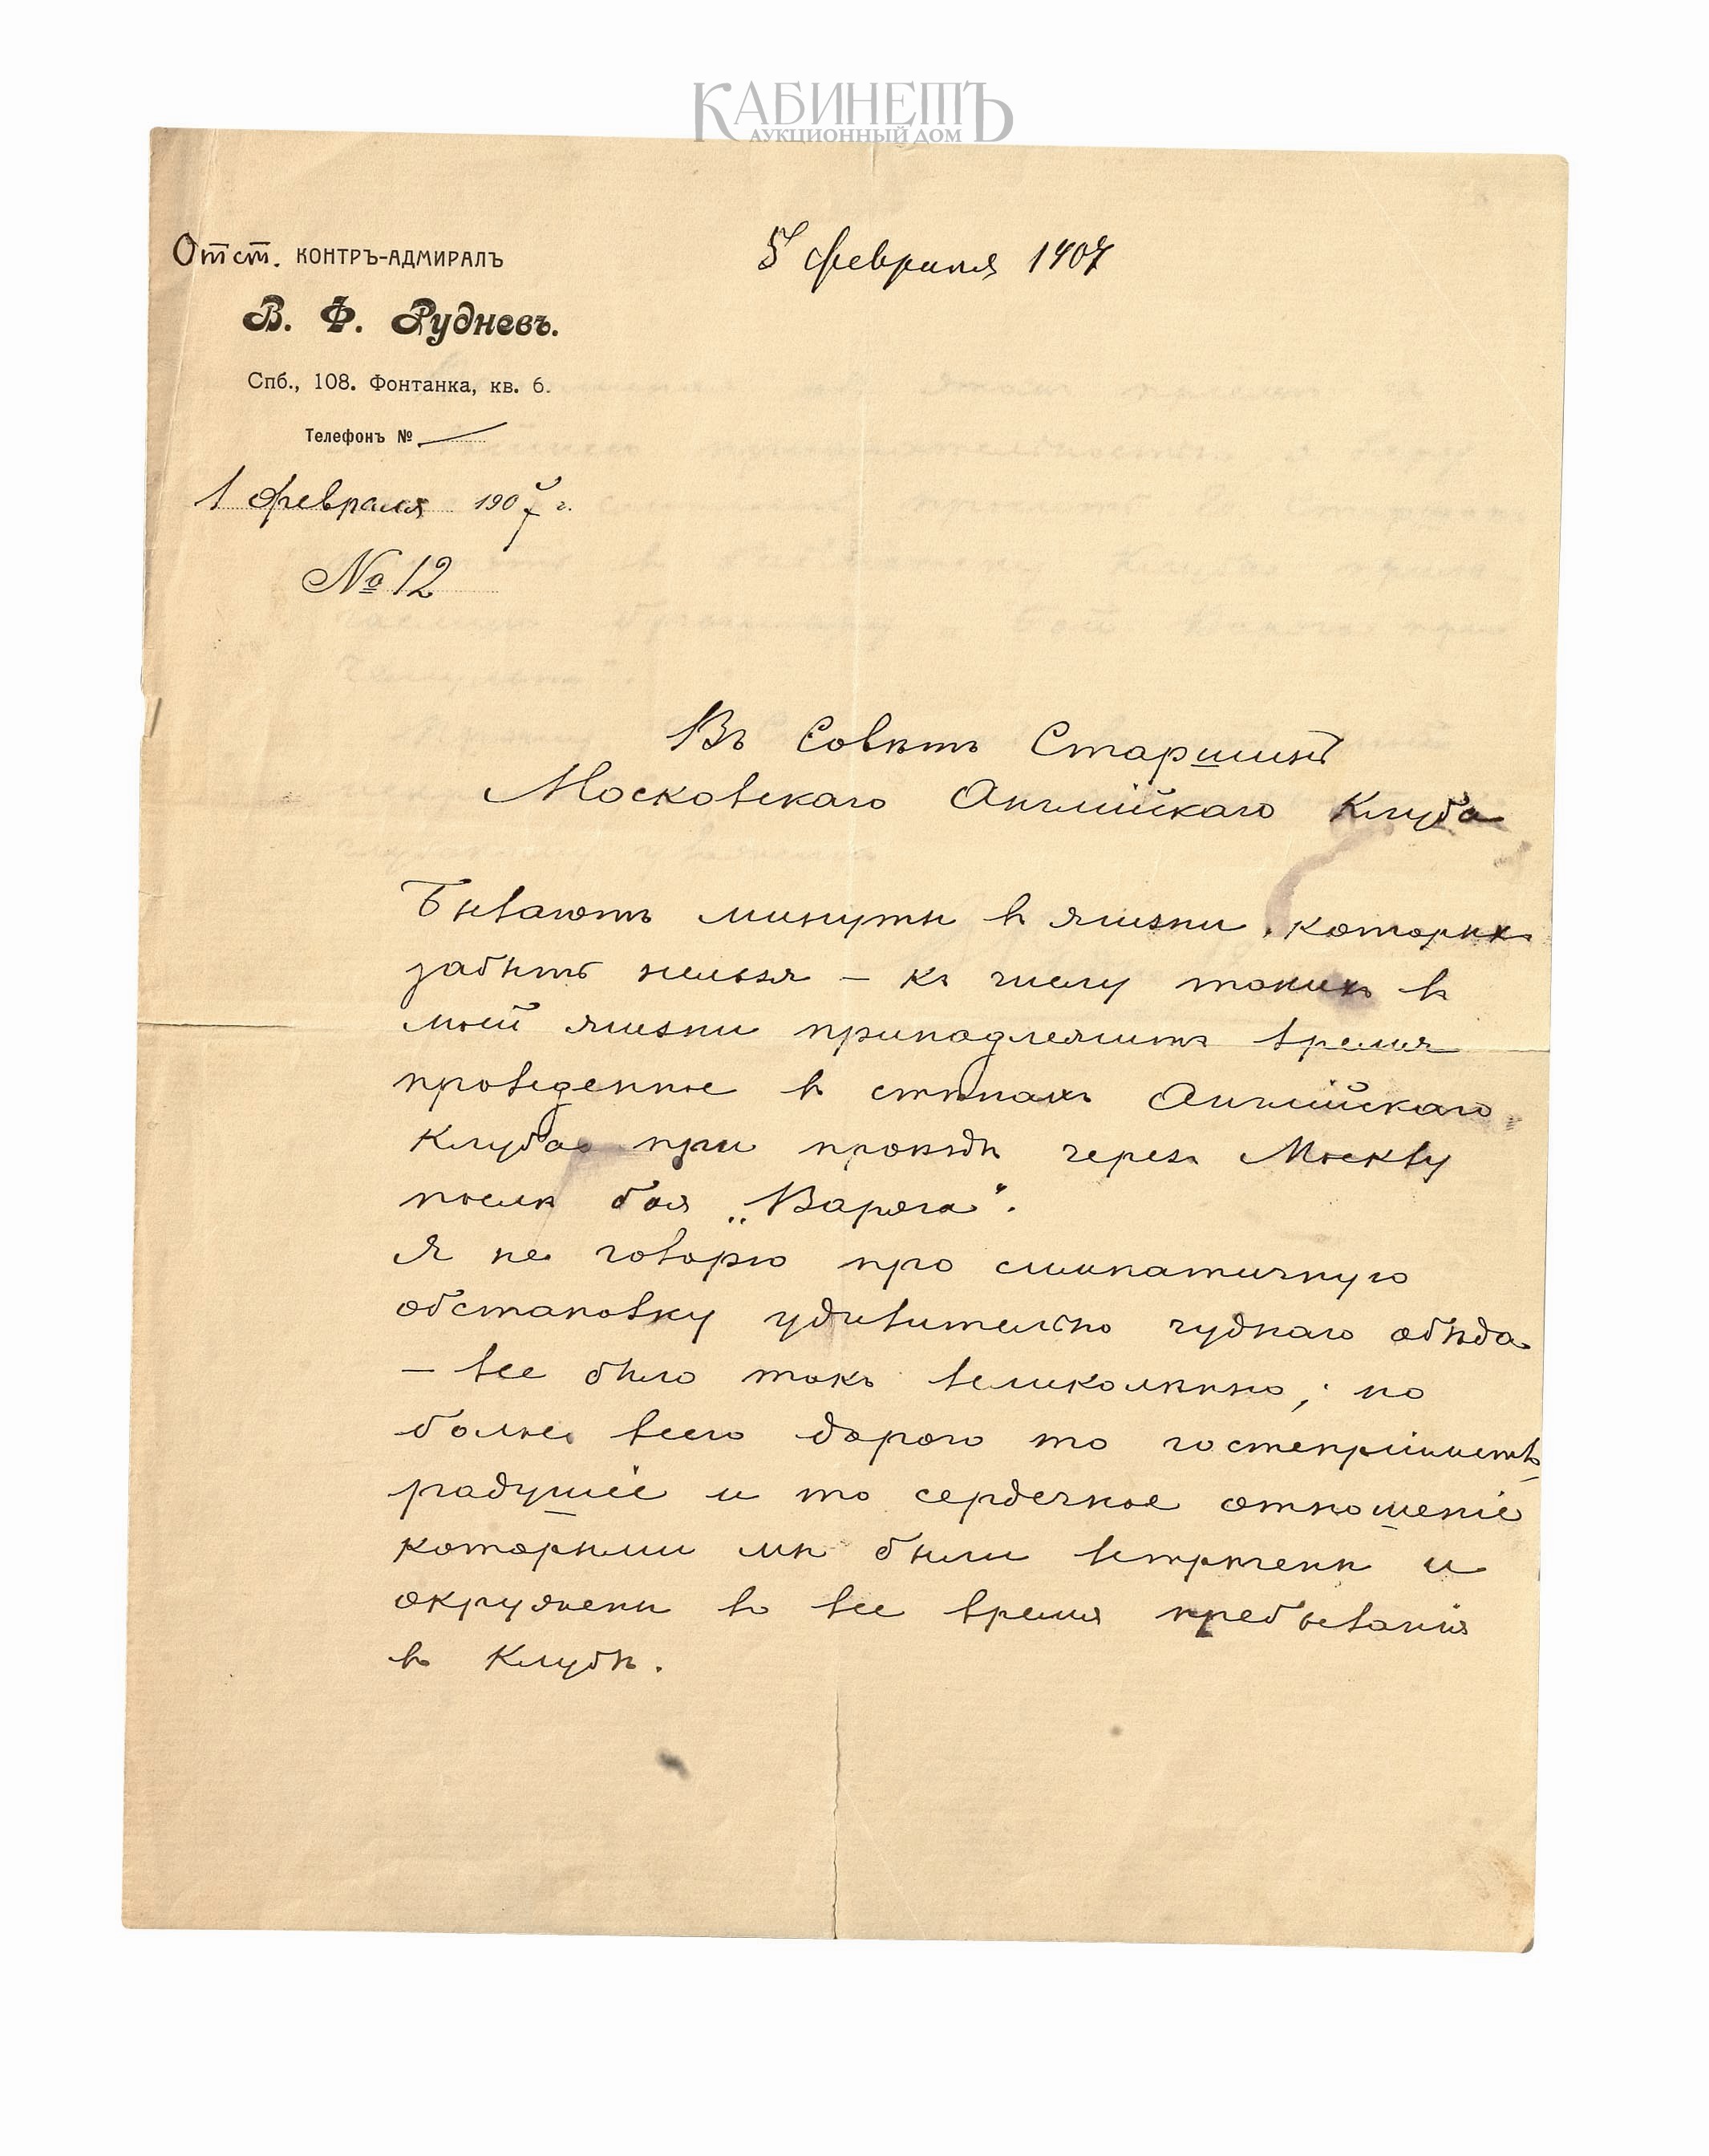 КАБИНЕТЪ
АУКЦИОННЫЙ ДОМ
Отст. КОНТРЪ-АДМИРАЛЪ
5 февраля 1907
В. Ф. Рудневъ.
Спб., 108. Фонтанка, кв. 6.
Телефонъ №
1 февраля 1907 г.
№ 12
Въ Совѣтъ Старшинъ
Московскаго Англійскаго Клуба
Бываютъ минуты въ жизни, которыхъ
забыть нельзя – къ числу такихъ въ
моей жизни принадлежитъ время
проведенное въ стѣнахъ Англійскаго
Клуба при проѣздѣ черезъ Москву
послѣ боя „Варяга".
Я не говорю про симпатичную
обстановку удивительно чуднаго обѣда
– все было такъ великолѣпно; но
болѣе всего дорого то гостепріимство,
радушіе и то сердечное отношеніе
которыми мы были встрѣчены и
окружены во все время пребыванія
въ Клубѣ.